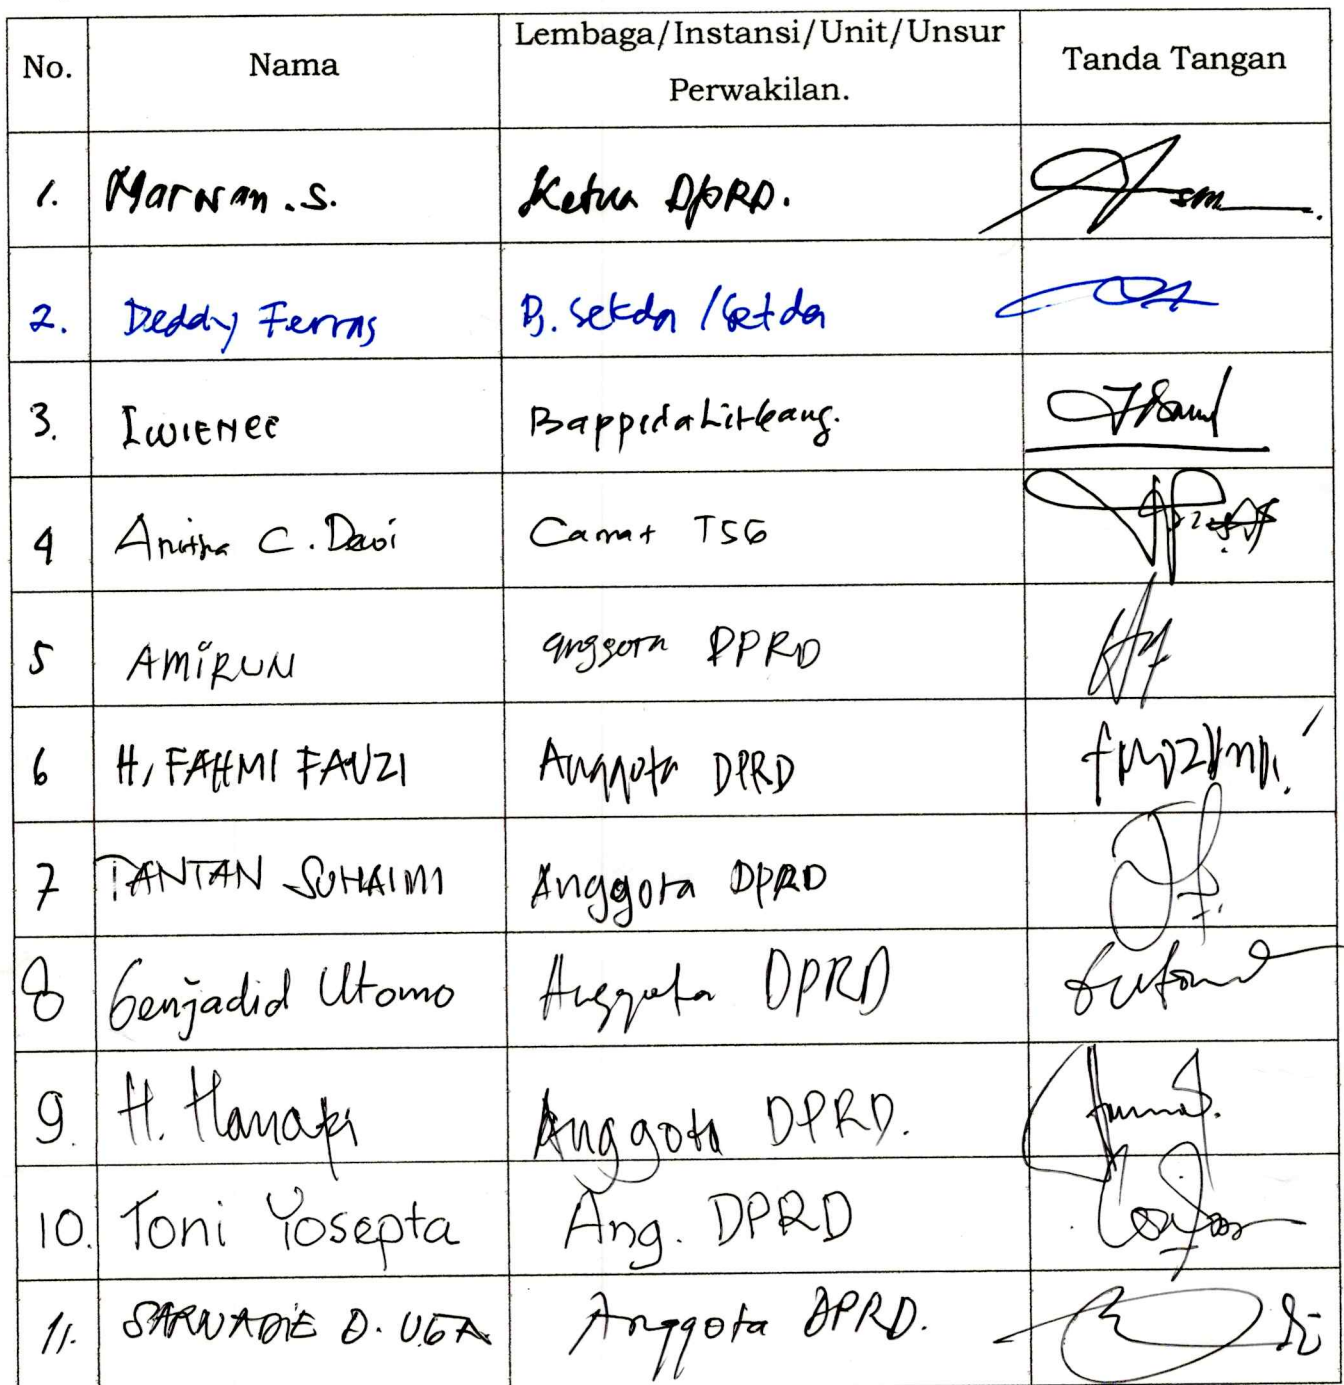 No. Nama Lembaga/Instansi/Unit/Unsur Perwakilan. Tanda Tangan
1. Marwan . S. Ketua DPRD.
2. Deddy Ferras Pj. Sekda / Setda
3. IWIENEE BappedaLitbang.
4 Anitha C. Dewi Camat TSG
5 AMIRUN anggota DPRD
6 H. FAHMI FAUZI Anggota DPRD
7 TANTAN SUHAIMI Anggota DPRD
8 Genjadid Utomo Anggota DPRD
9. H. Hanafi Anggota DPRD.
10. Toni Yosepta Ang. DPRD
11. SARWADIE D. UGA Anggota DPRD.